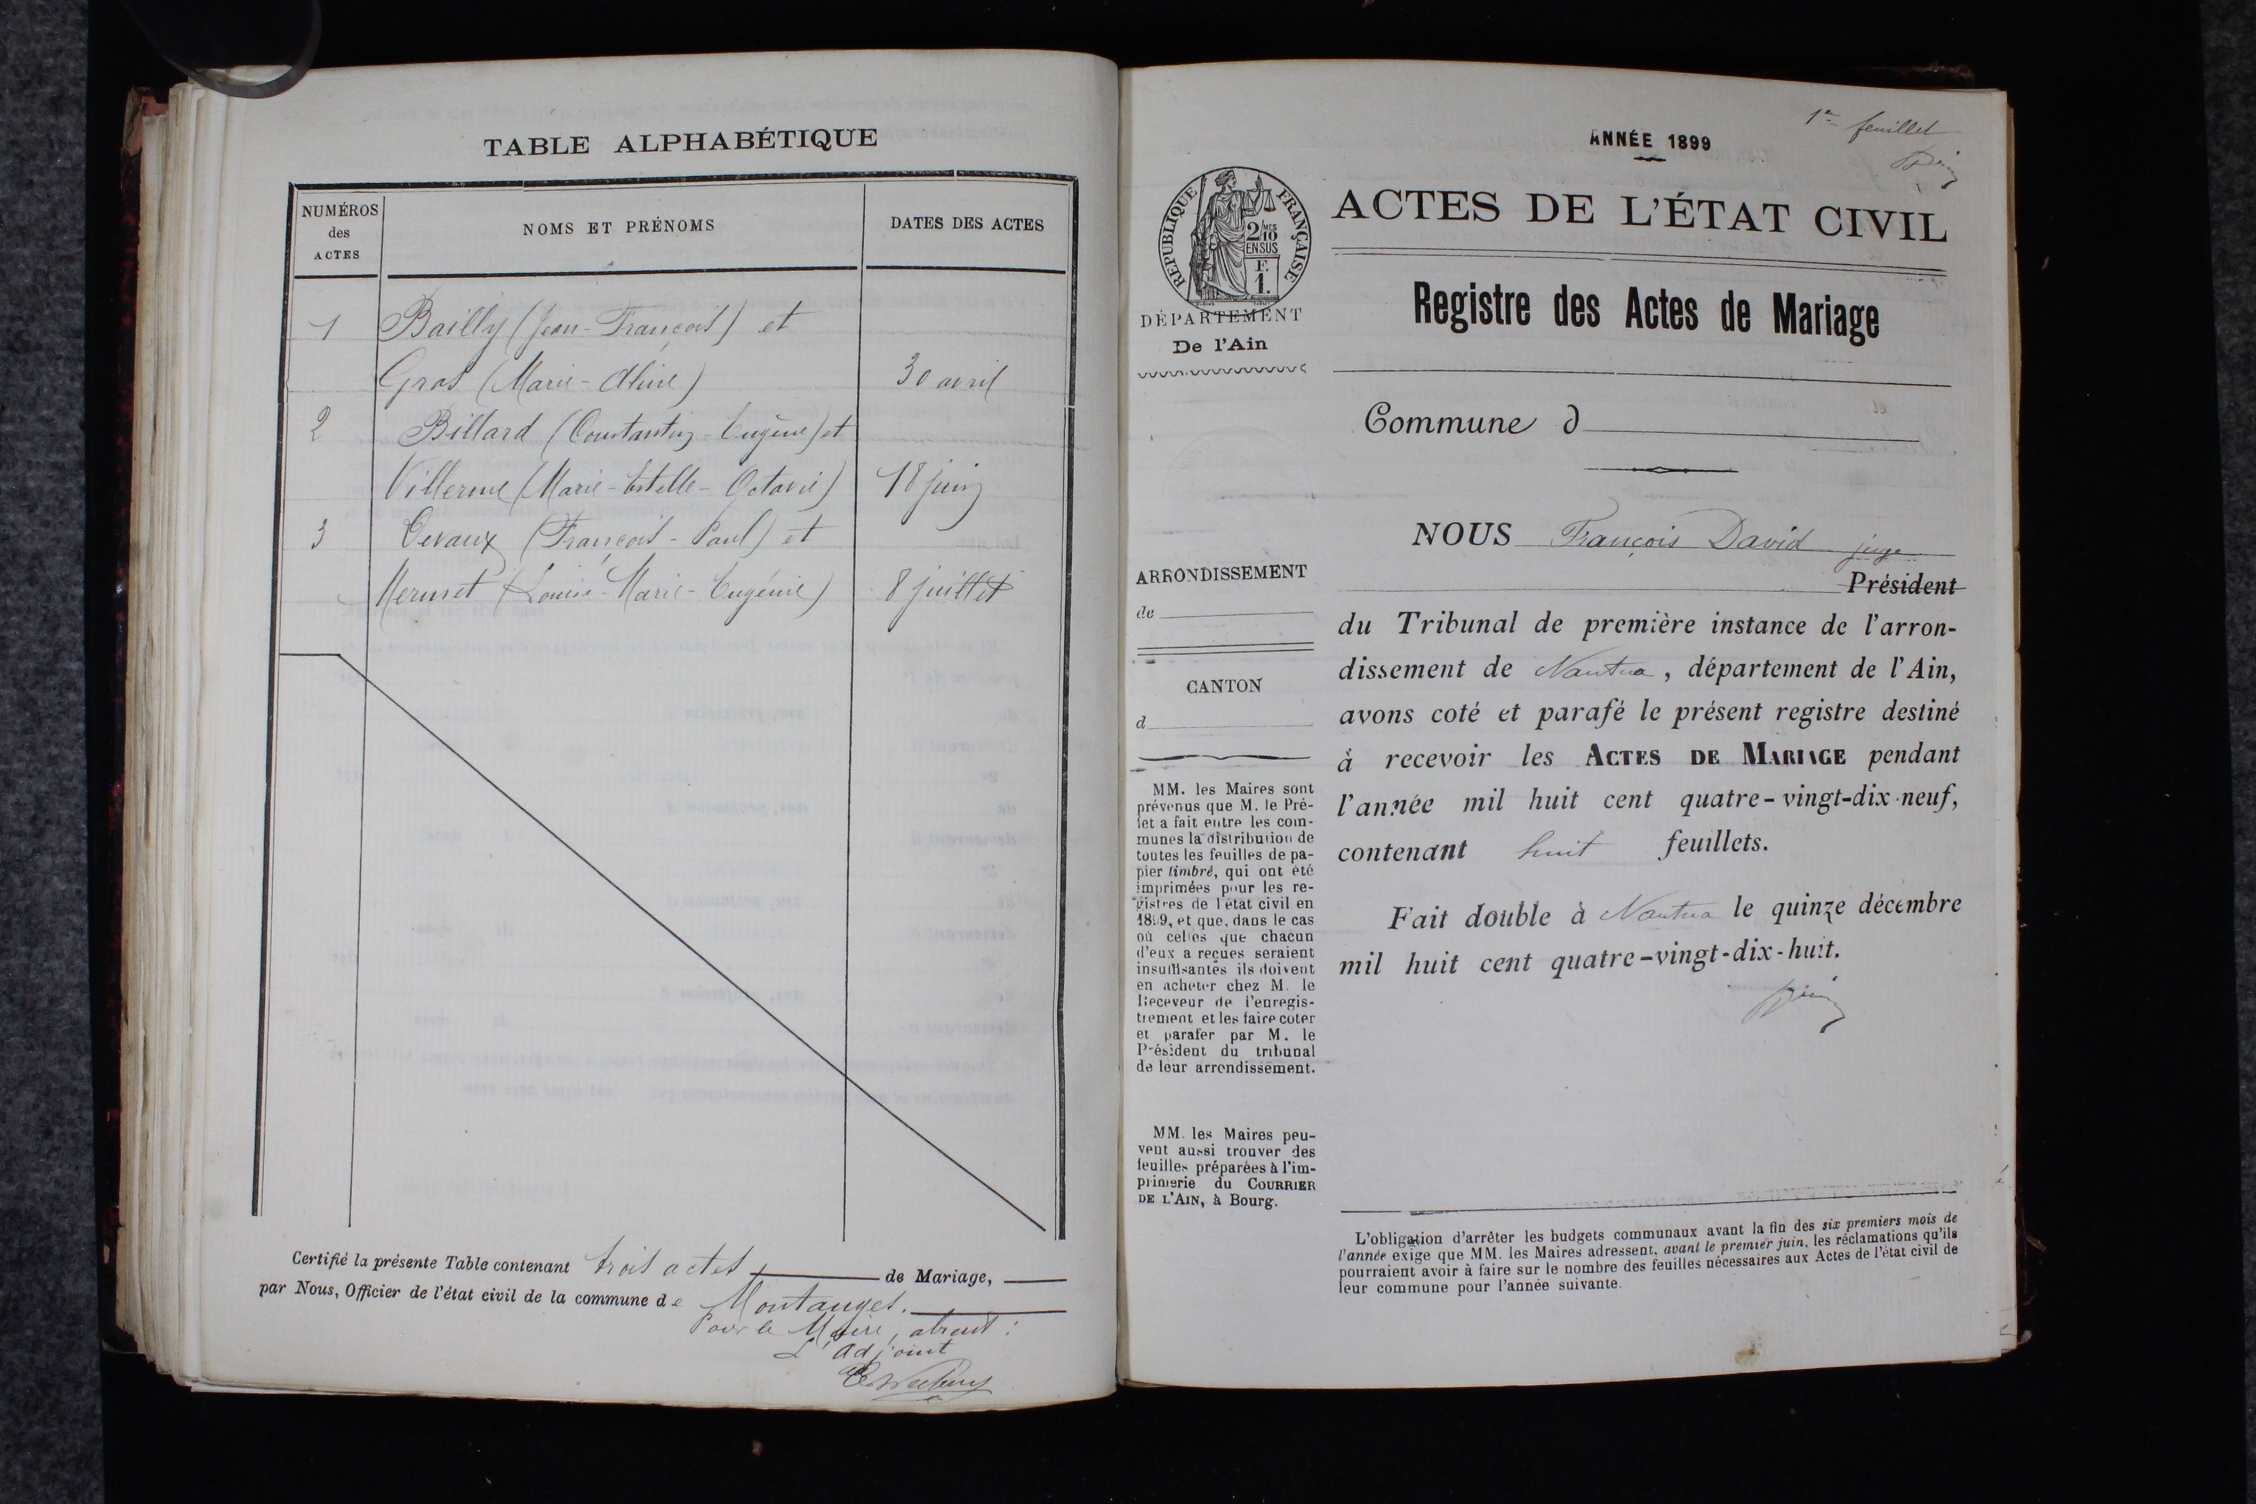 TABLE ALPHABÉTIQUE
NUMÉROS
des
ACTES
NOMS ET PRÉNOMS
DATES DES ACTES
1 Bailly (Jean-François) et
Gros (Marie-Aline) 30 avril
2 Billard (Constantin-Eugène) et
Villerme (Marie-Estelle-Octavie) 18 juin
3 Devaux (François-Paul) et
Mermet (Louise-Marie-Eugénie) 8 juillet
Certifié la présente Table contenant trois actes de Mariage,
par Nous, Officier de l'état civil de la commune de Montanges.
Pour le Maire, absent :
L'adjoint
1er feuillet
ANNÉE 1899
RÉPUBLIQUE FRANÇAISE
2/10 MES
EN SUS
F.
1.
DÉPARTEMENT
De l'Ain
ACTES DE L'ÉTAT CIVIL
Registre des Actes de Mariage
Commune d
ARRONDISSEMENT
de
CANTON
d
MM. les Maires sont
prévenus que M. le Pré-
fet a fait entre les com-
munes la distribution de
toutes les feuilles de pa-
pier timbré, qui ont été
imprimées pour les re-
gistres de l'état civil en
1899, et que, dans le cas
où celles que chacun
d'eux a reçues seraient
insuffisantes ils doivent
en acheter chez M. le
Receveur de l'enregis-
trement et les faire coter
et parafer par M. le
Président du tribunal
de leur arrondissement.
MM. les Maires peu-
vent aussi trouver des
feuilles préparées à l'im-
primerie du COURRIER
DE L'AIN, à Bourg.
NOUS François David juge
Président
du Tribunal de première instance de l'arron-
dissement de Nantua, département de l'Ain,
avons coté et parafé le présent registre destiné
à recevoir les ACTES DE MARIAGE pendant
l'année mil huit cent quatre-vingt-dix-neuf,
contenant huit feuillets.
Fait double à Nantua le quinze décembre
mil huit cent quatre-vingt-dix-huit.
L'obligation d'arrêter les budgets communaux avant la fin des six premiers mois de
l'année exige que MM. les Maires adressent, avant le premier juin, les réclamations qu'ils
pourraient avoir à faire sur le nombre des feuilles nécessaires aux Actes de l'état civil de
leur commune pour l'année suivante.